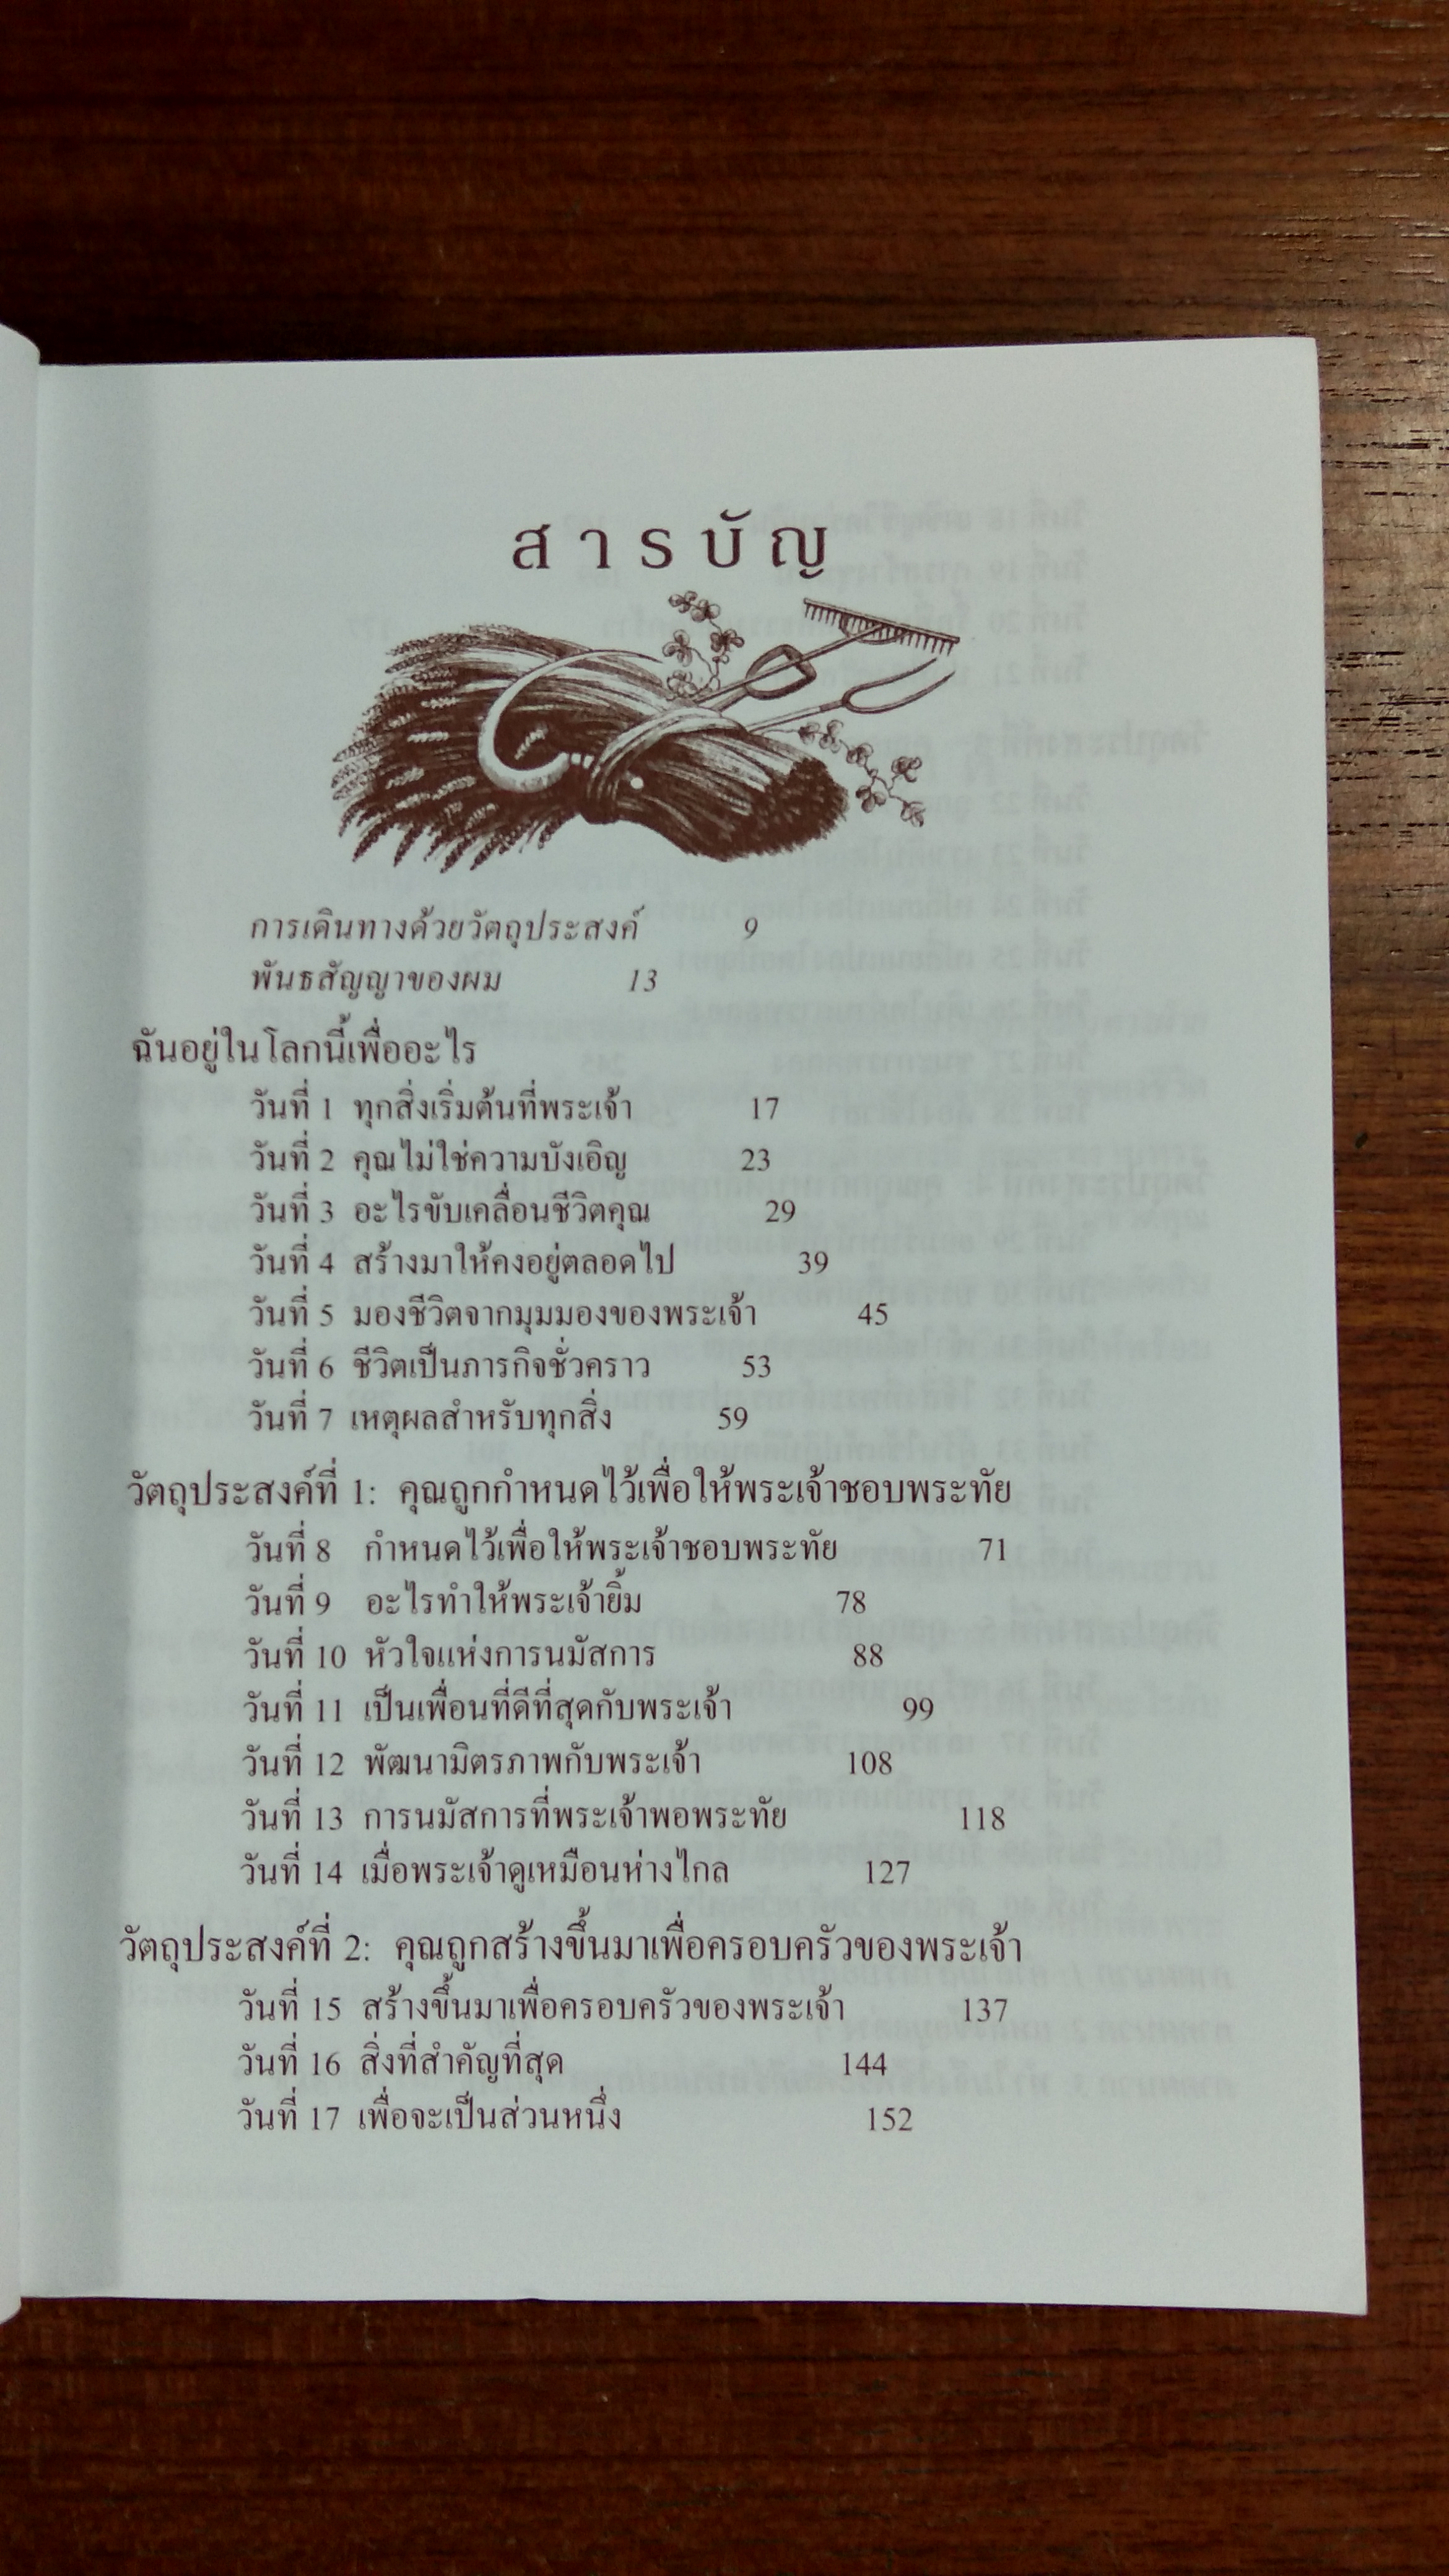 สารบัญ
การเดินทางด้วยวัตถุประสงค์ 9
พันธสัญญาของผม 13
ฉันอยู่ในโลกนี้เพื่ออะไร
วันที่ 1 ทุกสิ่งเริ่มต้นที่พระเจ้า 17
วันที่ 2 คุณไม่ใช่ความบังเอิญ 23
วันที่ 3 อะไรขับเคลื่อนชีวิตคุณ 29
วันที่ 4 สร้างมาให้คงอยู่ตลอดไป 39
วันที่ 5 มองชีวิตจากมุมมองของพระเจ้า 45
วันที่ 6 ชีวิตเป็นภารกิจชั่วคราว 53
วันที่ 7 เหตุผลสำหรับทุกสิ่ง 59
วัตถุประสงค์ที่ 1: คุณถูกกำหนดไว้เพื่อให้พระเจ้าชอบพระทัย
วันที่ 8 กำหนดไว้เพื่อให้พระเจ้าชอบพระทัย 71
วันที่ 9 อะไรทำให้พระเจ้ายิ้ม 78
วันที่ 10 หัวใจแห่งการนมัสการ 88
วันที่ 11 เป็นเพื่อนที่ดีที่สุดกับพระเจ้า 99
วันที่ 12 พัฒนามิตรภาพกับพระเจ้า 108
วันที่ 13 การนมัสการที่พระเจ้าพอพระทัย 118
วันที่ 14 เมื่อพระเจ้าดูเหมือนห่างไกล 127
วัตถุประสงค์ที่ 2: คุณถูกสร้างขึ้นมาเพื่อครอบครัวของพระเจ้า
วันที่ 15 สร้างขึ้นมาเพื่อครอบครัวของพระเจ้า 137
วันที่ 16 สิ่งที่สำคัญที่สุด 144
วันที่ 17 เพื่อจะเป็นส่วนหนึ่ง 152